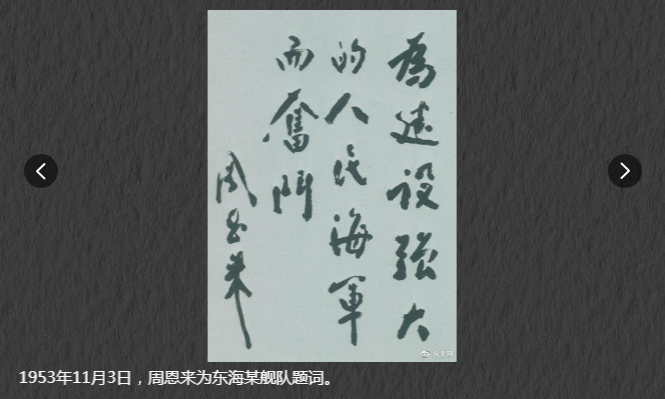 為建设强大
的人民海軍
而奮鬥
周恩来
1953年11月3日，周恩来为东海某舰队题词。